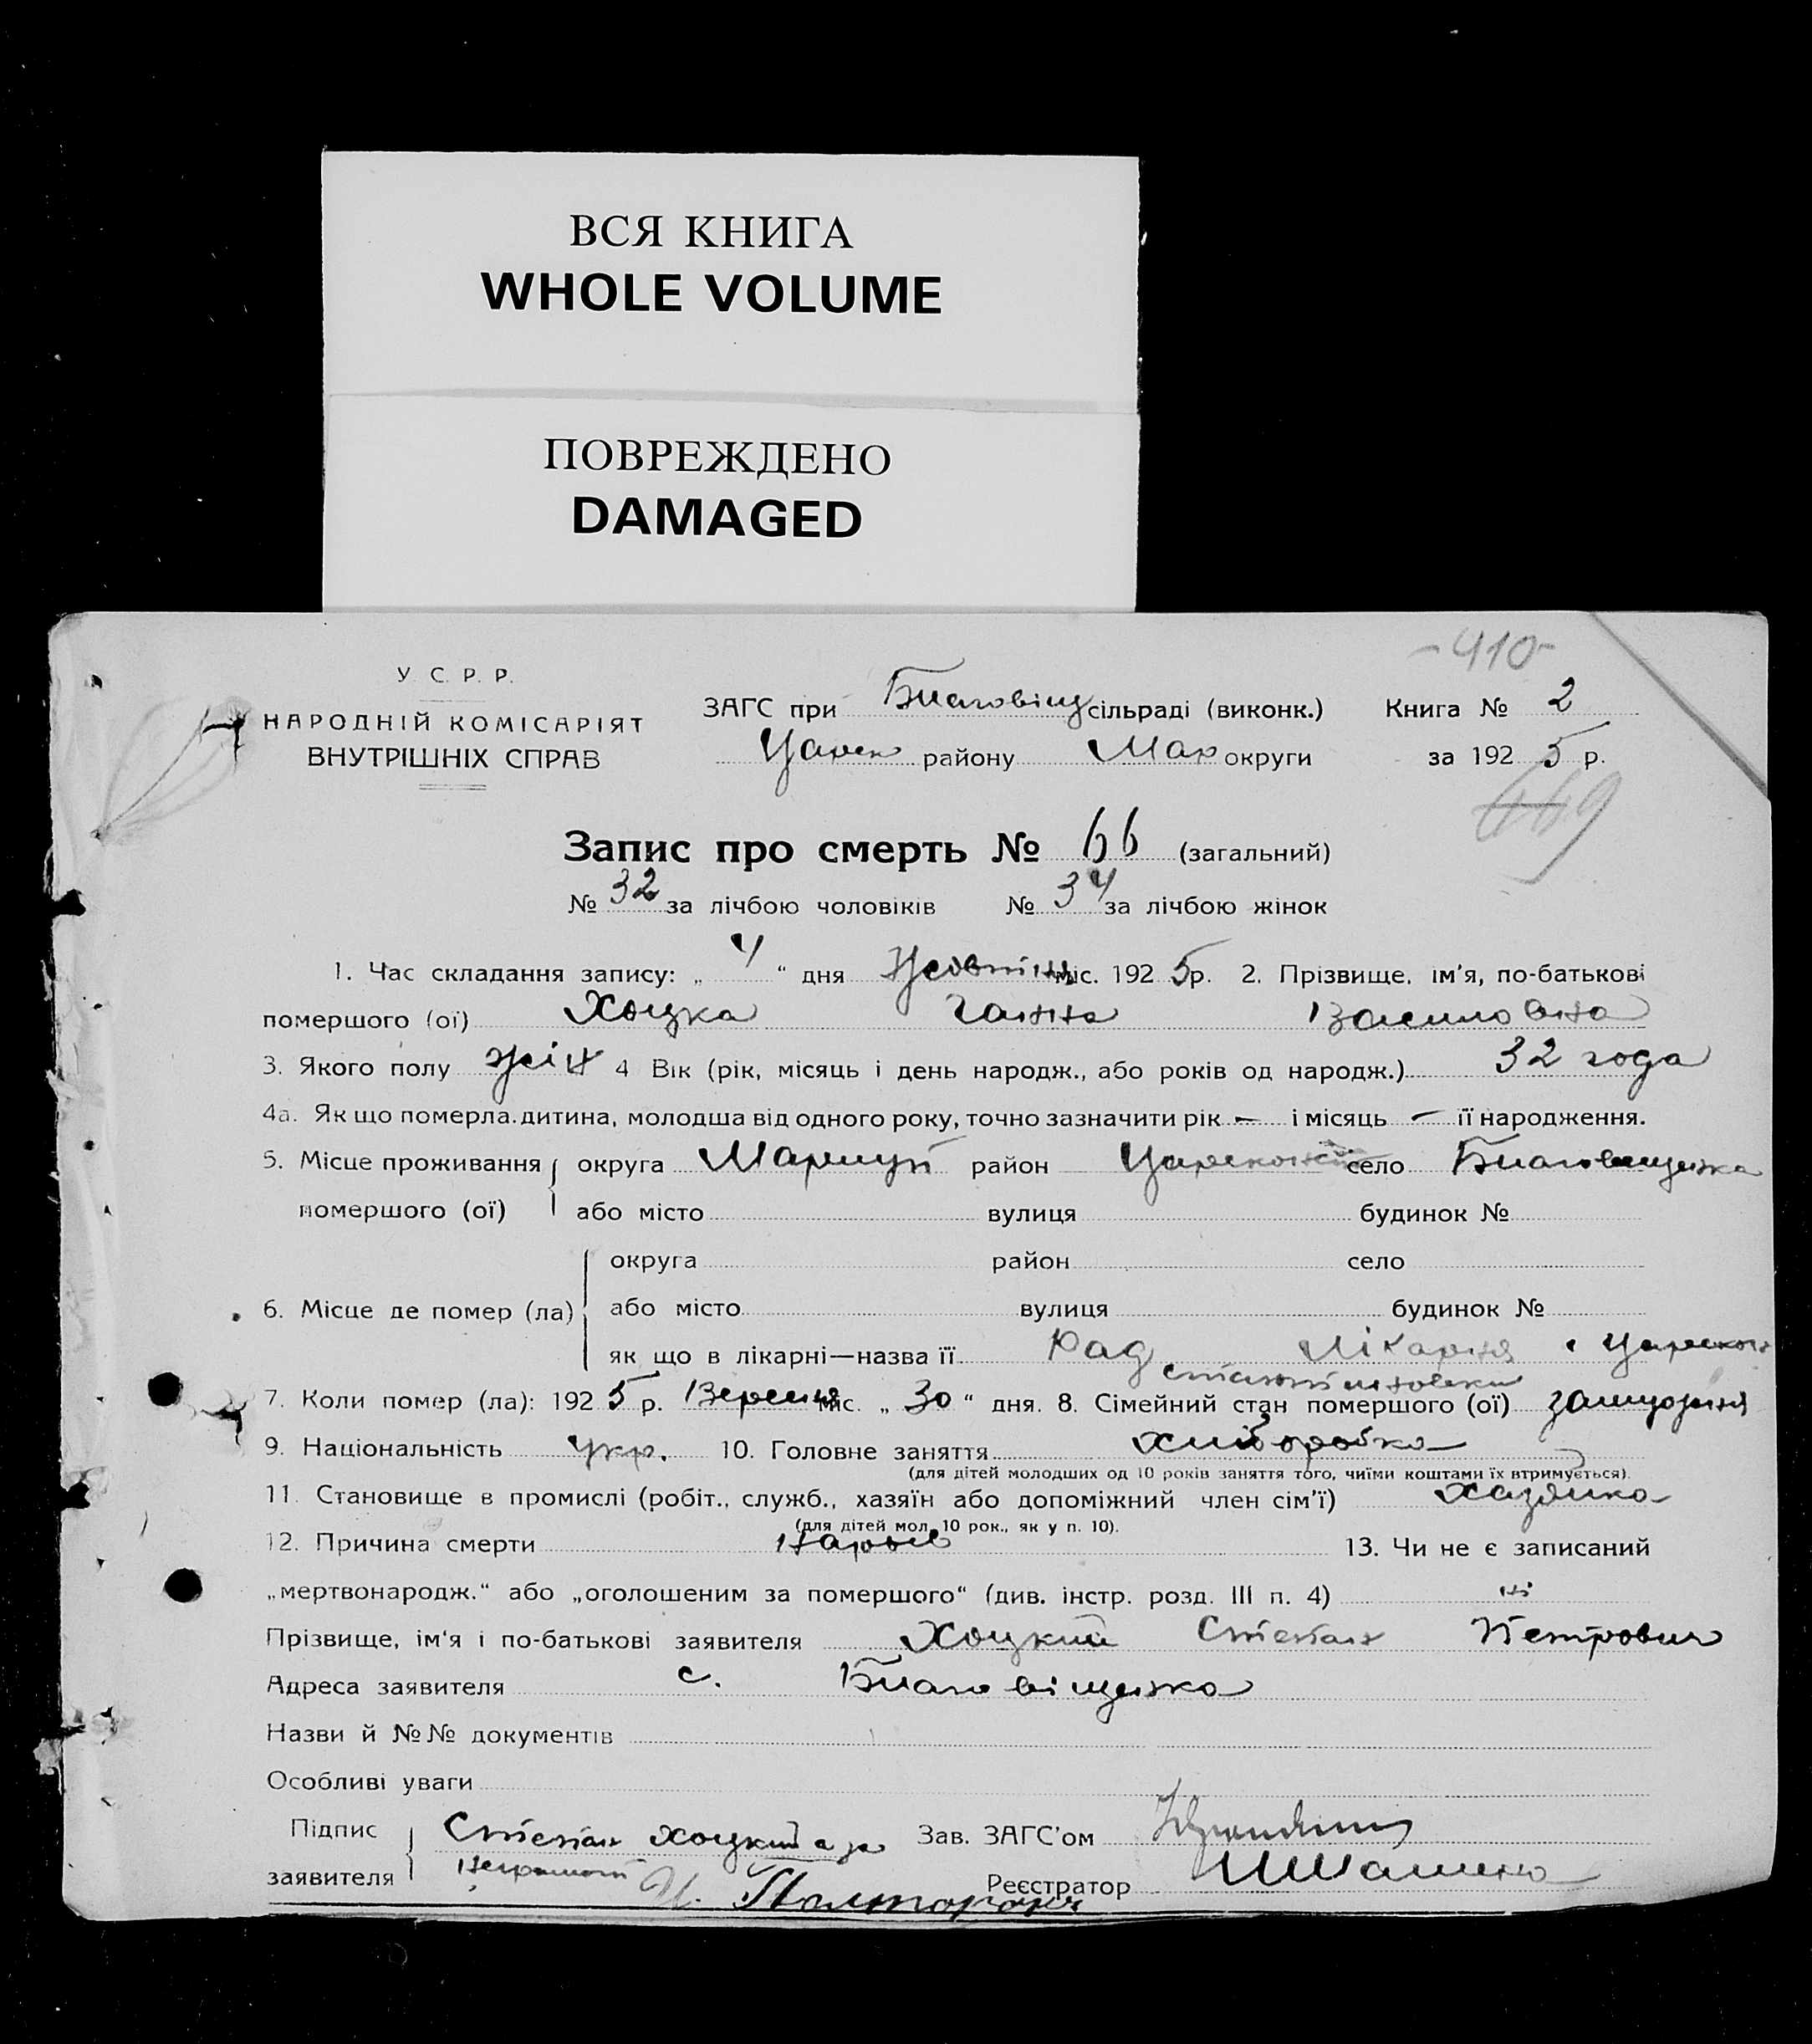 ВСЯ КНИГА
WHOLE VOLUME
ПОВРЕЖДЕНО
DAMAGED
-410-
У. С. Р. Р.
НАРОДНІЙ КОМІСАРІЯТ
ВНУТРІШНІХ СПРАВ
ЗАГС при Благовіщ сільраді (виконк.) Книга № 2
Царек району Мар округи за 1925 р.
Запис про смерть № 66 (загальний)
№ 32 за лічбою чоловіків № 34 за лічбою жінок
1. Час складання запису: „ 4 “ дня Жовтня міс. 1925 р. 2. Прізвище, ім'я, по-батькові
помершого (ої) Хоцка Ганна Василовна
3. Якого полу жін 4 Вік (рік, місяць і день народж., або років од народж.) 32 года
4а. Як що померла дитина, молодша від одного року, точно зазначити рік — і місяць — її народження.
5. Місце проживання округа Мариуп район село Благовещенка
помершого (ої) або місто вулиця будинок №
округа район село
6. Місце де помер (ла) або місто вулиця будинок №
як що в лікарні—назва її Рад Лікарня
7. Коли помер (ла): 1925 р. Вересня міс. „ 30 “ дня. 8. Сімейний стан помершого (ої)
9. Національність укр. 10. Головне заняття хліборобка
(для дітей молодших од 10 років заняття того, чиїми коштами їх втримується).
11. Становище в промислі (робіт., служб., хазяїн або допоміжний член сім'ї) хазяйка
(для дітей мол. 10 рок., як у п. 10).
12. Причина смерти нарыв 13. Чи не є записаний
„мертвонародж.“ або „оголошеним за помершого“ (див. інстр. розд. III п. 4) ні
Прізвище, ім'я і по-батькові заявителя Хоцкий Степан Петрович
Адреса заявителя с. Благовіщенка
Назви й №№ документів
Особливі уваги
Підпис Степан Хоцкий а за Зав. ЗАГС'ом
заявителя неграмот Реєстратор